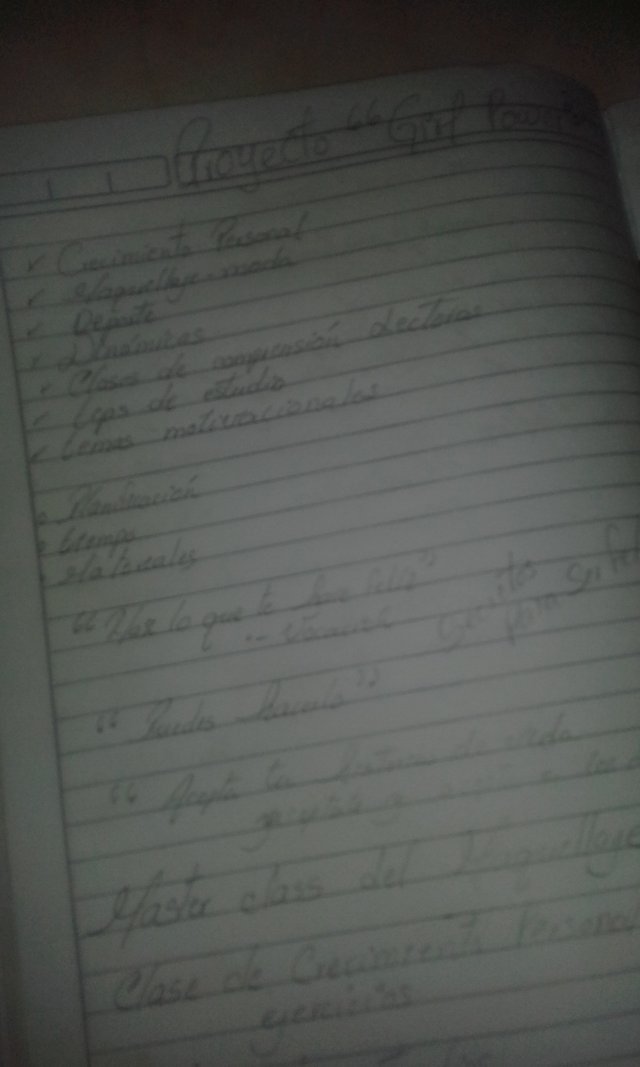 Proyecto "Girl Power"
✓ Crecimiento Personal
✓ Maquillaje-moda
✓ Deporte
✓ Dinámicas
✓ Clases de comprensión Lectoras
✓ Tips de estudio
✓ temas motivacionales
Planificación
tiempo
Materiales
"Haz lo que te hace feliz"
Secretos
para ser
"Puedes hacerlo"
" Acepta tu historia de vida
Master class del Maquillaje
Clase de Crecimiento Persona
ejercicios